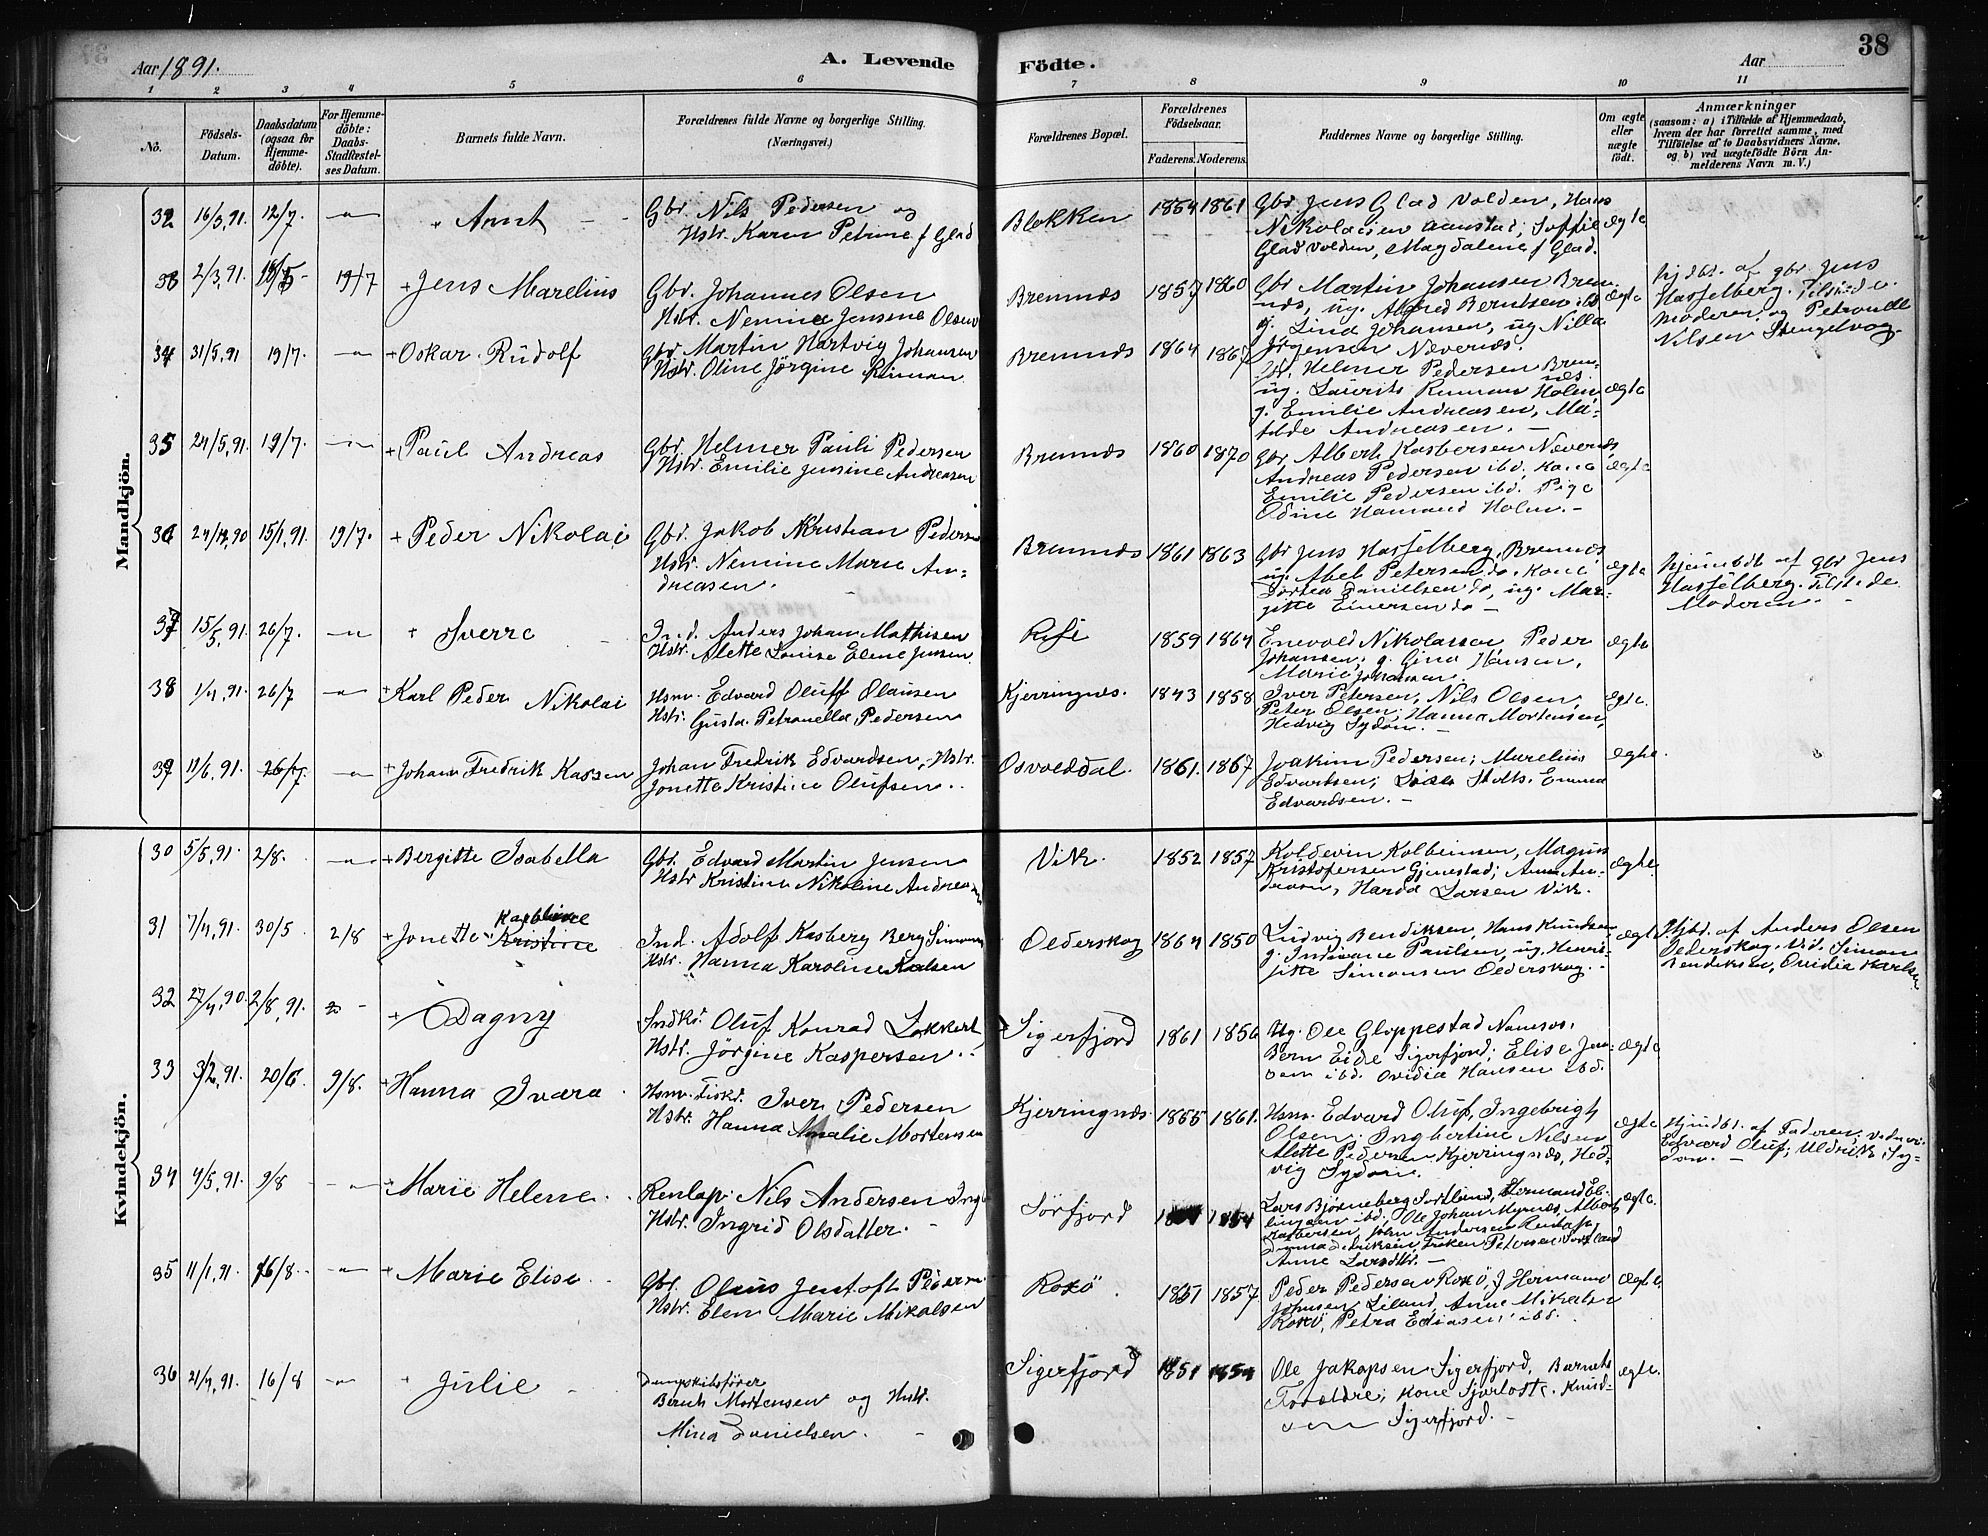 Aar 1891.
A. Levende
Födte.
Aar
38
1 2 3 4 5 6 7 8 9 10 11
No.
Födsels-
Datum.
Daabsdatum
(ogsaa for
Hjemme-
döbte).
For Hjemme-
döbte:
Daabs-
Stadfæstel-
ses Datum.
Barnets fulde Navn.
Forældrenes fulde Navne og borgerlige Stilling.
(Næringsvei.)
Forældrenes Bopæl.
Forældrenes
Födselsaar.
Faderens. Moderens.
Faddernes Navne og borgerlige Stilling.
Om ægte
eller
uægte
födt.
Anmærkninger
(saasom: a) i Tilfælde af Hjemmedaab,
hvem der har forrettet samme, med
Tilföielse af to Daabsvidners Navne,
og b) ved uægtefödte Börn An-
melderens Navn m. V.)
Mandkjön.
32 16/3,91. 12/7. -"- + Arnt
Gbr. Nils Pedersen og
Hstr. Karen Petrine f Glad
Blokken 1854 1861
Gbr. Jens Glad Volden, Hans
Nikolaisen Aanstad; Soffie
Glad Volden, Magdalene f Glad.
Ægte
33 2/3,91. 18/5 - 19/7 + Jens Marelius
Gbr. Johannes Olsen
Hstr. Nemine Jensine Olsen
Bremnes 1857 1860
Gbr Martin Johansen Brem-
nes, ug. Alfred Berntsen ibd
g. Lina Johansen, ug Nilla
Jörgensen Nevernes.
Ægte
hjdbt. af gbr. Jens
Hasselberg. Tilstede.
Moderen og Petronelle
Nilsen Stengelvag.
34 31/5,91 19/7. -"- + Oskar Rudolf
Gbr. Martin Hartvig Johansen
Hstr. Oline Jörgine
Bremnes 1864 1867
Helmer Pedersen Brem-
nes.
ug. Laurits Holm,
g. Emilie Andreasen, Ma-
tilde Andreasen. -
Ægte
35 24/5,91 19/7. -"- + Paul Andreas
Gbr. Helmer Pauli Pedersen
Hstr. Emilie Jensine Andreasen
Bremnes 1860 1870
Gbr. Albert Kasbersen Nevernes,
Andreas Pedersen ibd, Kone
Emilie Pedersen ibd. Pige
Odine Hamand Holm. -
Ægte
36 15/1,91. 19/7. + Peder Nikolai
Gbr. Jakob Kristian Pedersen
Hstr. Nemine Marie An-
dreasen.
Bremnes 1861 1863
Gbr Jens Hasselberg, Bremnes,
ug. Abel Petersen do. Kone
Dortea Danielsen do, ug. Mar-
gitte Einersen do -
Ægte
hjemmdbt af gbr Jens
Hasselberg. Tilstede
Moderen. -
37 15/5,91. 26/7. -"- + Sverre
Ind. Anders Johan Mathisen
Hstr. Alette Louise Elene Jensen
1859 1864
Enevold Nikolassen Peder
Johansen, g. Lina Hansen,
Marie Johansen.
Ægte
38 26/7 -"- + Karl Peder Nikolai
Hsm. Edvard Oluff Olausen
Hstr. Gusta Petronella Pedersen
Kjerringnes. 1843 1858
Iver Petersen, Nils Olsen,
Peter Olsen; Hanna Mortensen,
Hedvig Sydon. -
Ægte.
39 11/6,91. 26/7. -"- + Johan Fredrik Kassen
Johan Fredrik Edvardsen, Hstr.
Jonette Kristine Olufsen.
Osvolddal. 1861. 1867
Joakim Pedersen; Marelius
Edvartsen; Stolts. Emma
Edvardsen. -
Ægte.
Kvindekjön.
30 5/5,91. 2/8. -"- + Bergitte Isabella
Gbr. Edvard Martin Jensen
Hstr Kristine Nikoline Andreasen
Vik. 1852 1857
Koldevin Kolbeinsen, Magnus
Kristofersen Gjerstad; Anne An-
dresen, Larsen Vik.
Ægte.
31 7/4,91. 30/5. 2/8 + Jonette Karoline Kristine
Ind. Adolf Kasberg Berg Simonsen
Hstr. Hanna Karoline Karlsen
Oederskog 1864 1850
Ludvig Bendiksen, Hans Knudsen
g. Indianne Paulsen, ug. Henri-
jitte Simonsen Oederskog. -
Ægte
Hjbd. af Anders Olsen
Oederskog. Vid. Simon
Bendiksen, Ovidia Karlsen
32 27/4,90. 2/8,91. + Dagny
Indkr. Oluf Konrad Lokkert
Hstr. Jörgine Kaspersen.
Sigerfjord 1861 1856
Ug. Ole Gloppestad Namsos,
Bern Eide Sigerfjord; Elise Jen-
sen ibd. Ovidia Hansen ibd.
Ægte
33 3/2,91. 20/6 9/8. + Hanna Ivara
Hsm. Fisk. Iver Pedersen
Hstr. Hanna Amalie Mortensen
Kjerringnes 1855 1861.
Hsm. Edvard Oluf, Ingebrigt
Olsen, Ingbertine Nilsen
Alette Pedersen Kjerringnes, Hed-
vig Sydon.
Ægte
Hjmdbt. af Faderen, vidner
Edvard Oluf; Uldrik Sy-
don. -
34 4/5,91. 9/8 -"- + Marie Helene.
Renlap. Nils Andersen
Hstr. Ingrid Olsdatter. -
Sörfjord 1854
Lars Bjørneberg Sortland, Hermand El-
lingsen ibd; Ole Johan Albert
John Andersen Renlap
Fröken Petersen Sortland
Anne Larsdtr. -
Ægte.
35 11/1,91. 16/8. -"- + Marie Elise
Gbr. Olaus Jentoft Pedersen
Hstr. Elen Marie Mikalsen
Roksö. 1851 1857.
Peder Pedersen Roksö, J Hermand
Johnsen Liland, Anne Mikalsen
Roksö, Petra Ediasen, ibd.
Ægte.
36 21/4,91. 16/8 -"- + Julie -
Dampskibsförer
Bernt Mortensen og Hstr.
Mina Danielsen. -
Sigerfjord 1851 1854
Ole Jakopsen Sigerfjord, Barnets
Foraeldre; Kone Knud-
sen Sigerfjord. -
Ægte.